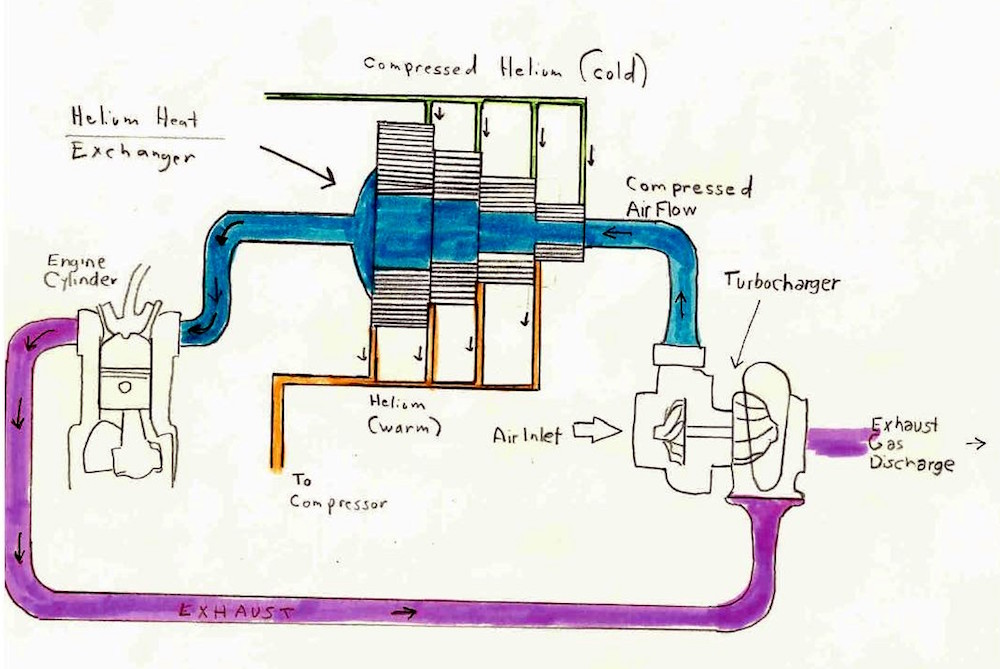 Compressed Helium (cold)
Helium Heat
Exchanger
Compressed
Air Flow
Engine
Cylinder
Turbocharger
Helium
(warm)
Air Inlet
Exhaust
Gas
Discharge
To
Compressor
EXHAUST